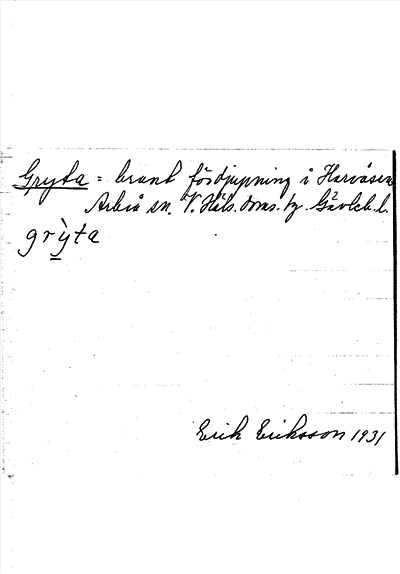 Gryta = brant fördjupning i Harvåsen
Arbrå sn. V. Häls. doms. hg. Gävleb. l.
grỳta
Erik Eriksson 1931